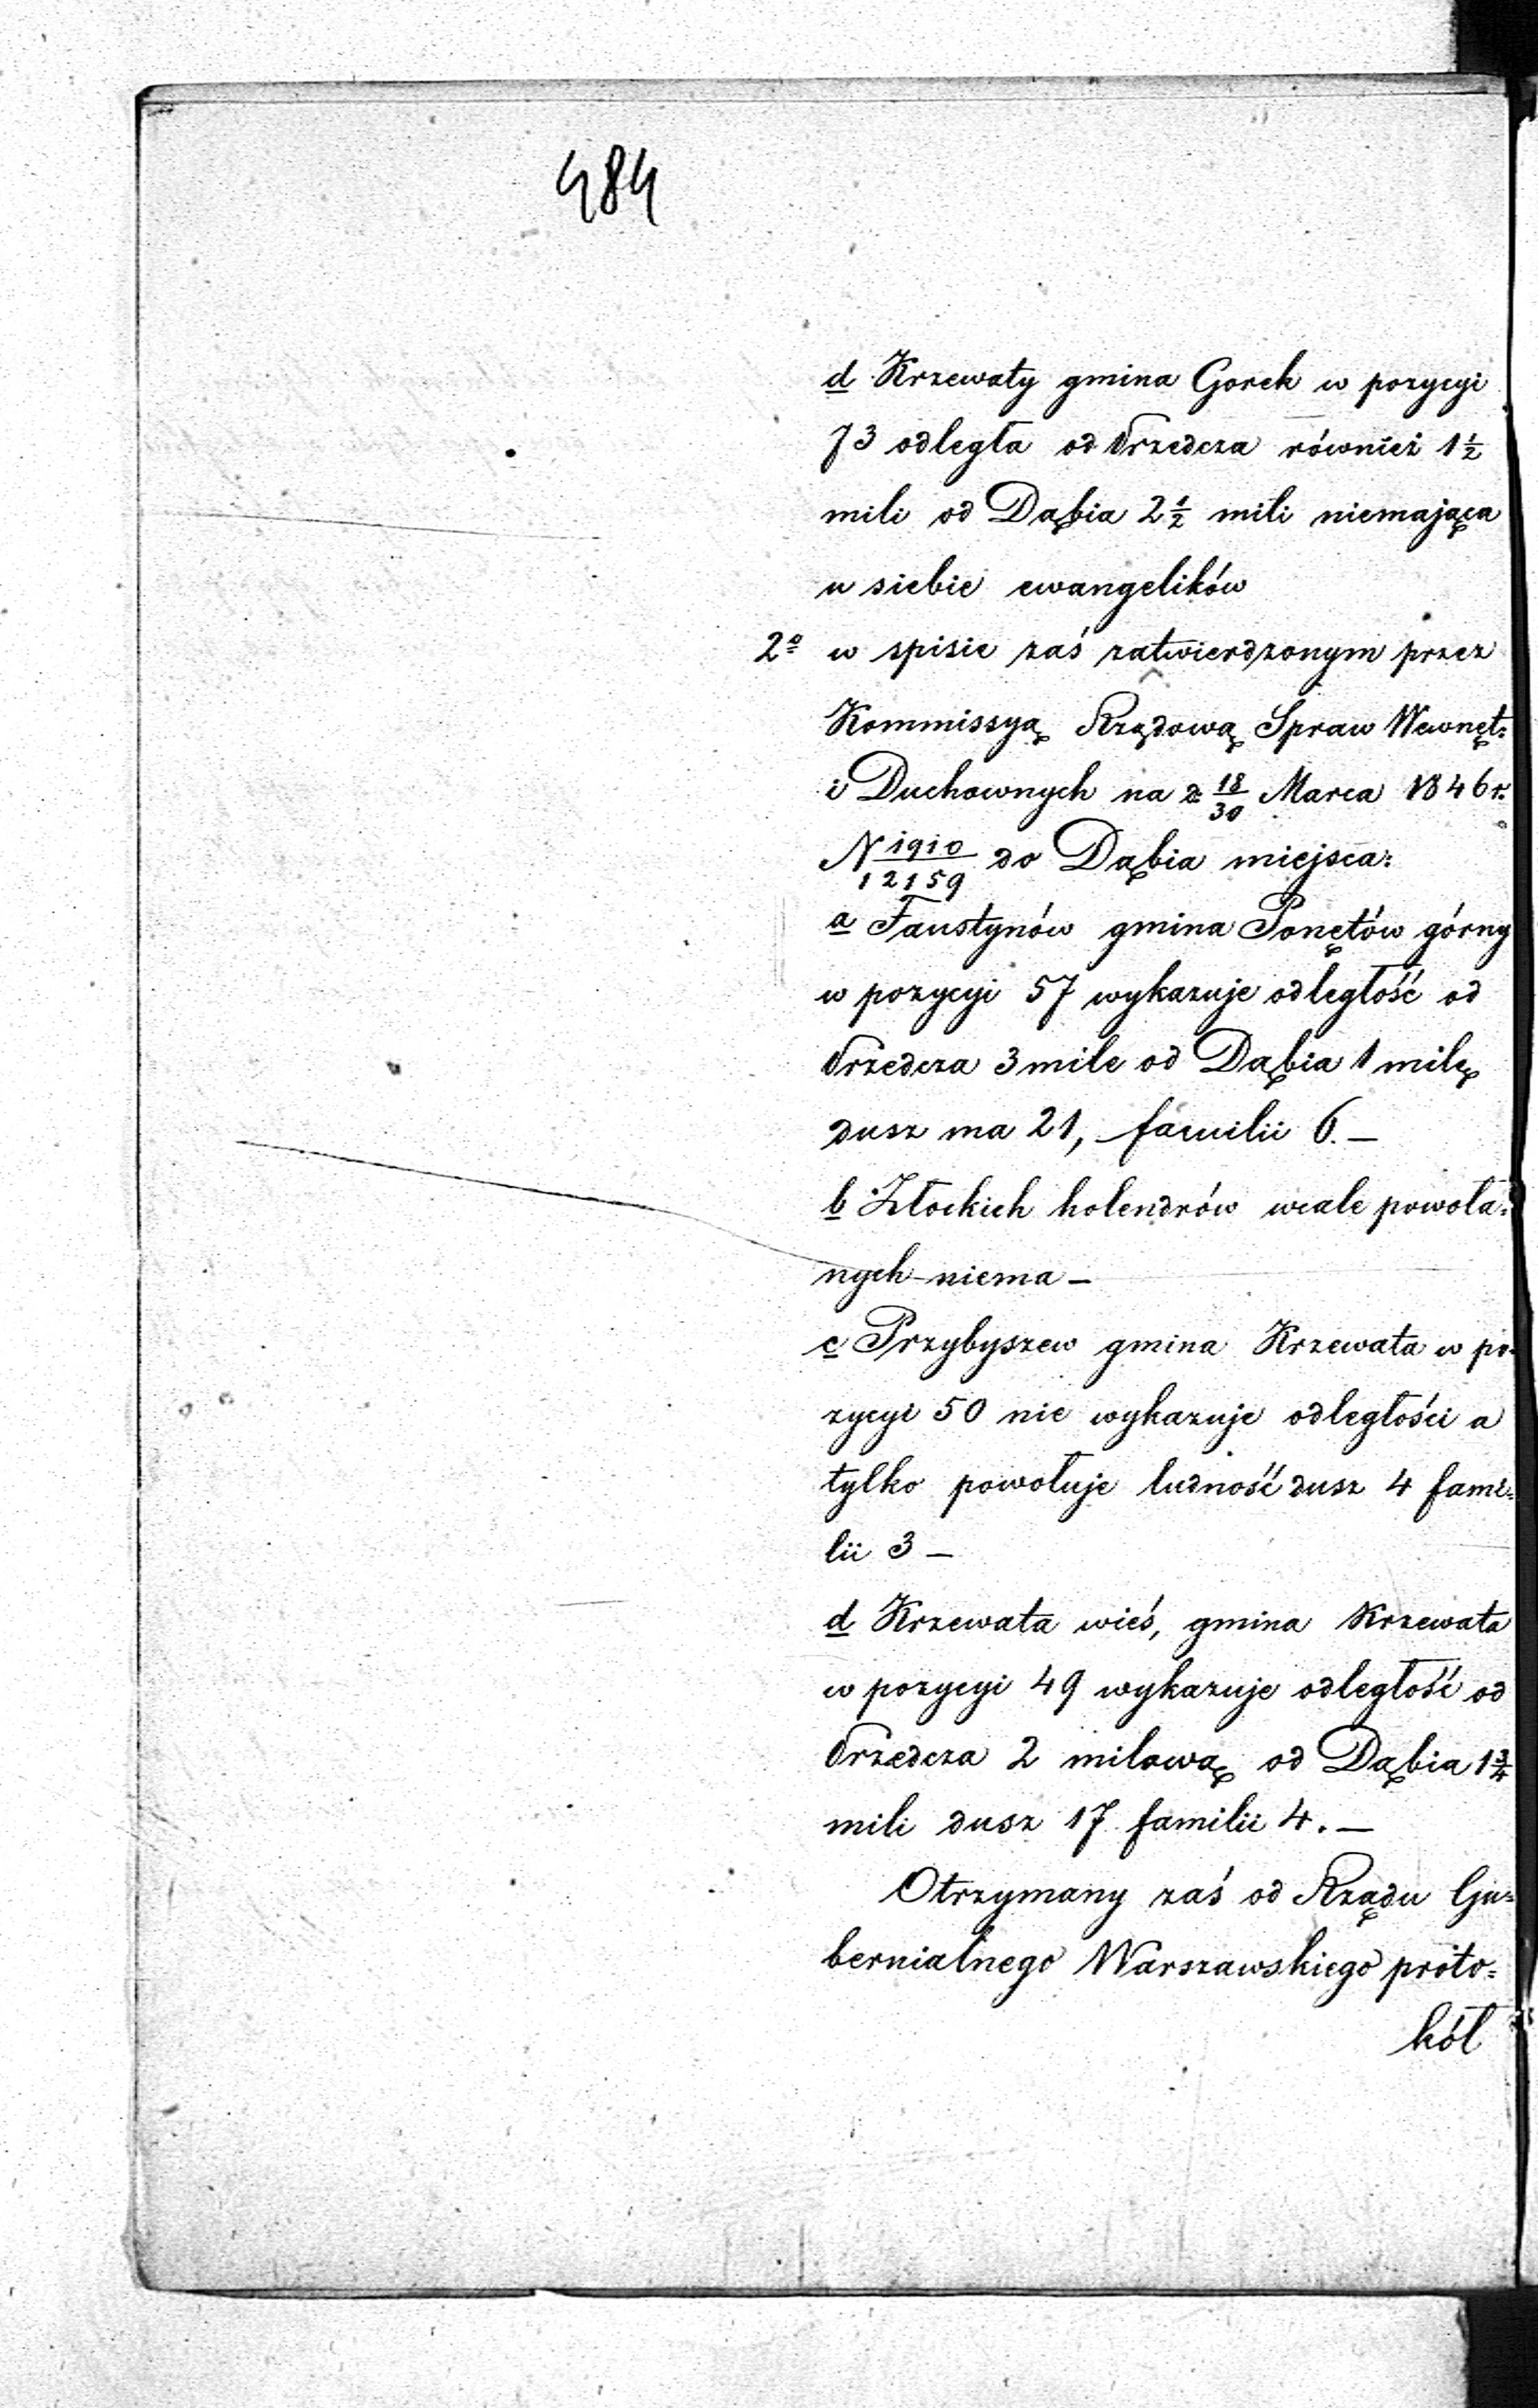 484
d Krzewaty gmina Gorek w pozycyi
73 odległa od Przedcza również 1½
mili od Dąbia 2½ mili niemająca
u siebie ewangelików
2º w spisie zaś zatwierdzonym przez
Kommissyą Rządową Spraw Wewnęt=
i Duchownych na d 18/30 Marca 1846 r.
N 1910/12159 do Dąbia miejsca:
a Faustynów gmina Ponętów górny
w pozycyi 57 wykazuje odległość od
Przedcza 3 mile od Dąbia 1 milę
dusz ma 21, familii 6.—
b Złockich holendrów wcale powoła=
nych niema —
c Przybyszew gmina Krzewata w po=
zycyi 50 nie wykazuje odległości a
tylko powołuje ludność dusz 4 fami=
lii 3 —
d Krzewata wieś, gmina Krzewata
w pozycyi 49 wykazuje odległość od
Przedcza 2 milową od Dąbia 1¾
mili dusz 17 familii 4.—
Otrzymany zaś od Rządu Gu=
bernialnego Warszawskiego proto=
kół